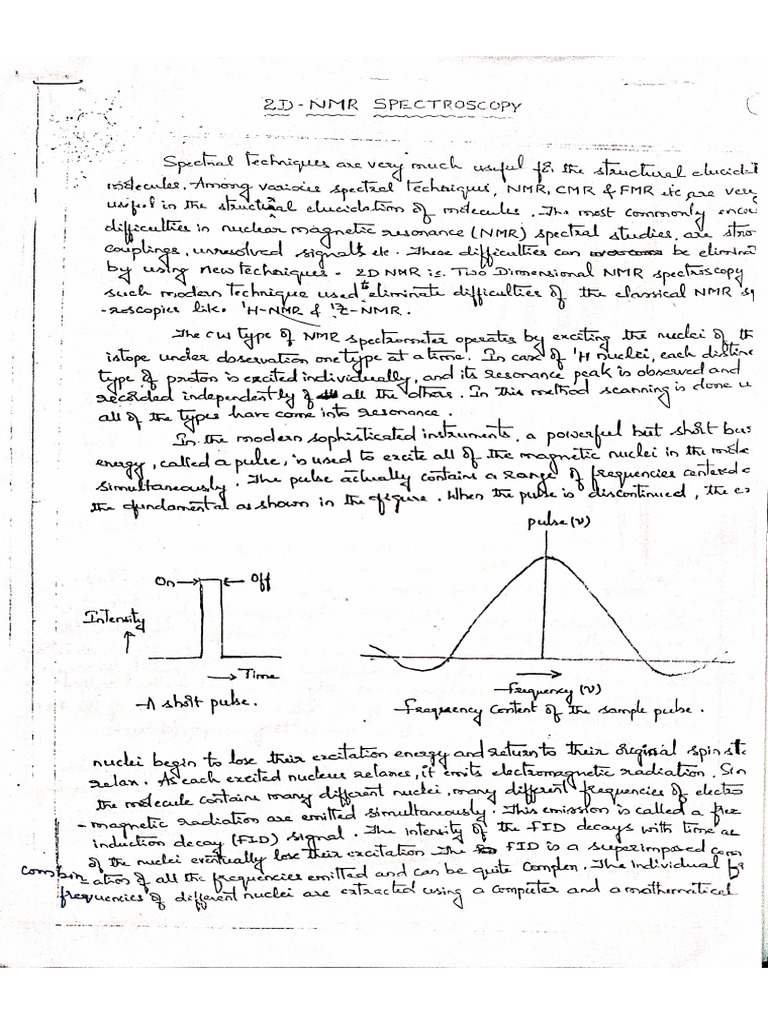 2D-NMR SPECTROSCOPY
Spectral techniques are very much useful for the structural elucidat
molecules. Among various spectral techniques, NMR, CMR & FMR etc are very
useful in the structural elucidation of molecules. The most commonly encou
difficulties in nuclear magnetic resonance (NMR) spectral studies, are stro
couplings, unresolved signals etc. These difficulties can be eliminat
by using new techniques. 2D NMR is Two Dimensional NMR spectroscopy
such modern technique used to eliminate difficulties of the classical NMR sp
-roscopies like ¹H-NMR & -NMR.
The CW type of NMR spectrometer operates by exciting the nuclei of th
istope under observation one type at a time. In case of ¹H nuclei, each distinc
type of proton is excited individually, and its resonance peak is observed and
recorded independently of all the others. In this method scanning is done u
all of the types have come into resonance.
In the modern sophisticated instruments, a powerful but short burs
energy, called a pulse, is used to excite all of the magnetic nuclei in the mole
simultaneously. The pulse actually contains a range of frequencies centered o
the fundamental as shown in the figure. When the pulse is discontinued, the ex
pulse (ν)
On → ← Off
Intensity
↑
→ Time
→
Frequency (ν)
A short pulse.
Frequency Content of the sample pulse.
nuclei begin to lose their excitation energy and return to their original spin st
relax. As each excited nucleus relaxes, it emits electromagnetic radiation. Sin
the molecule contains many different nuclei, many different frequencies of electro
-magnetic radiation are emitted simultaneously. This emission is called a free
induction decay (FID) signal. The intensity of the FID decays with time as
of the nuclei eventually lose their excitation. The FID is a superimposed com
combin-ation of all the frequencies emitted and can be quite complex. The individual fre
frequencies of different nuclei are extracted using a computer and a mathematical